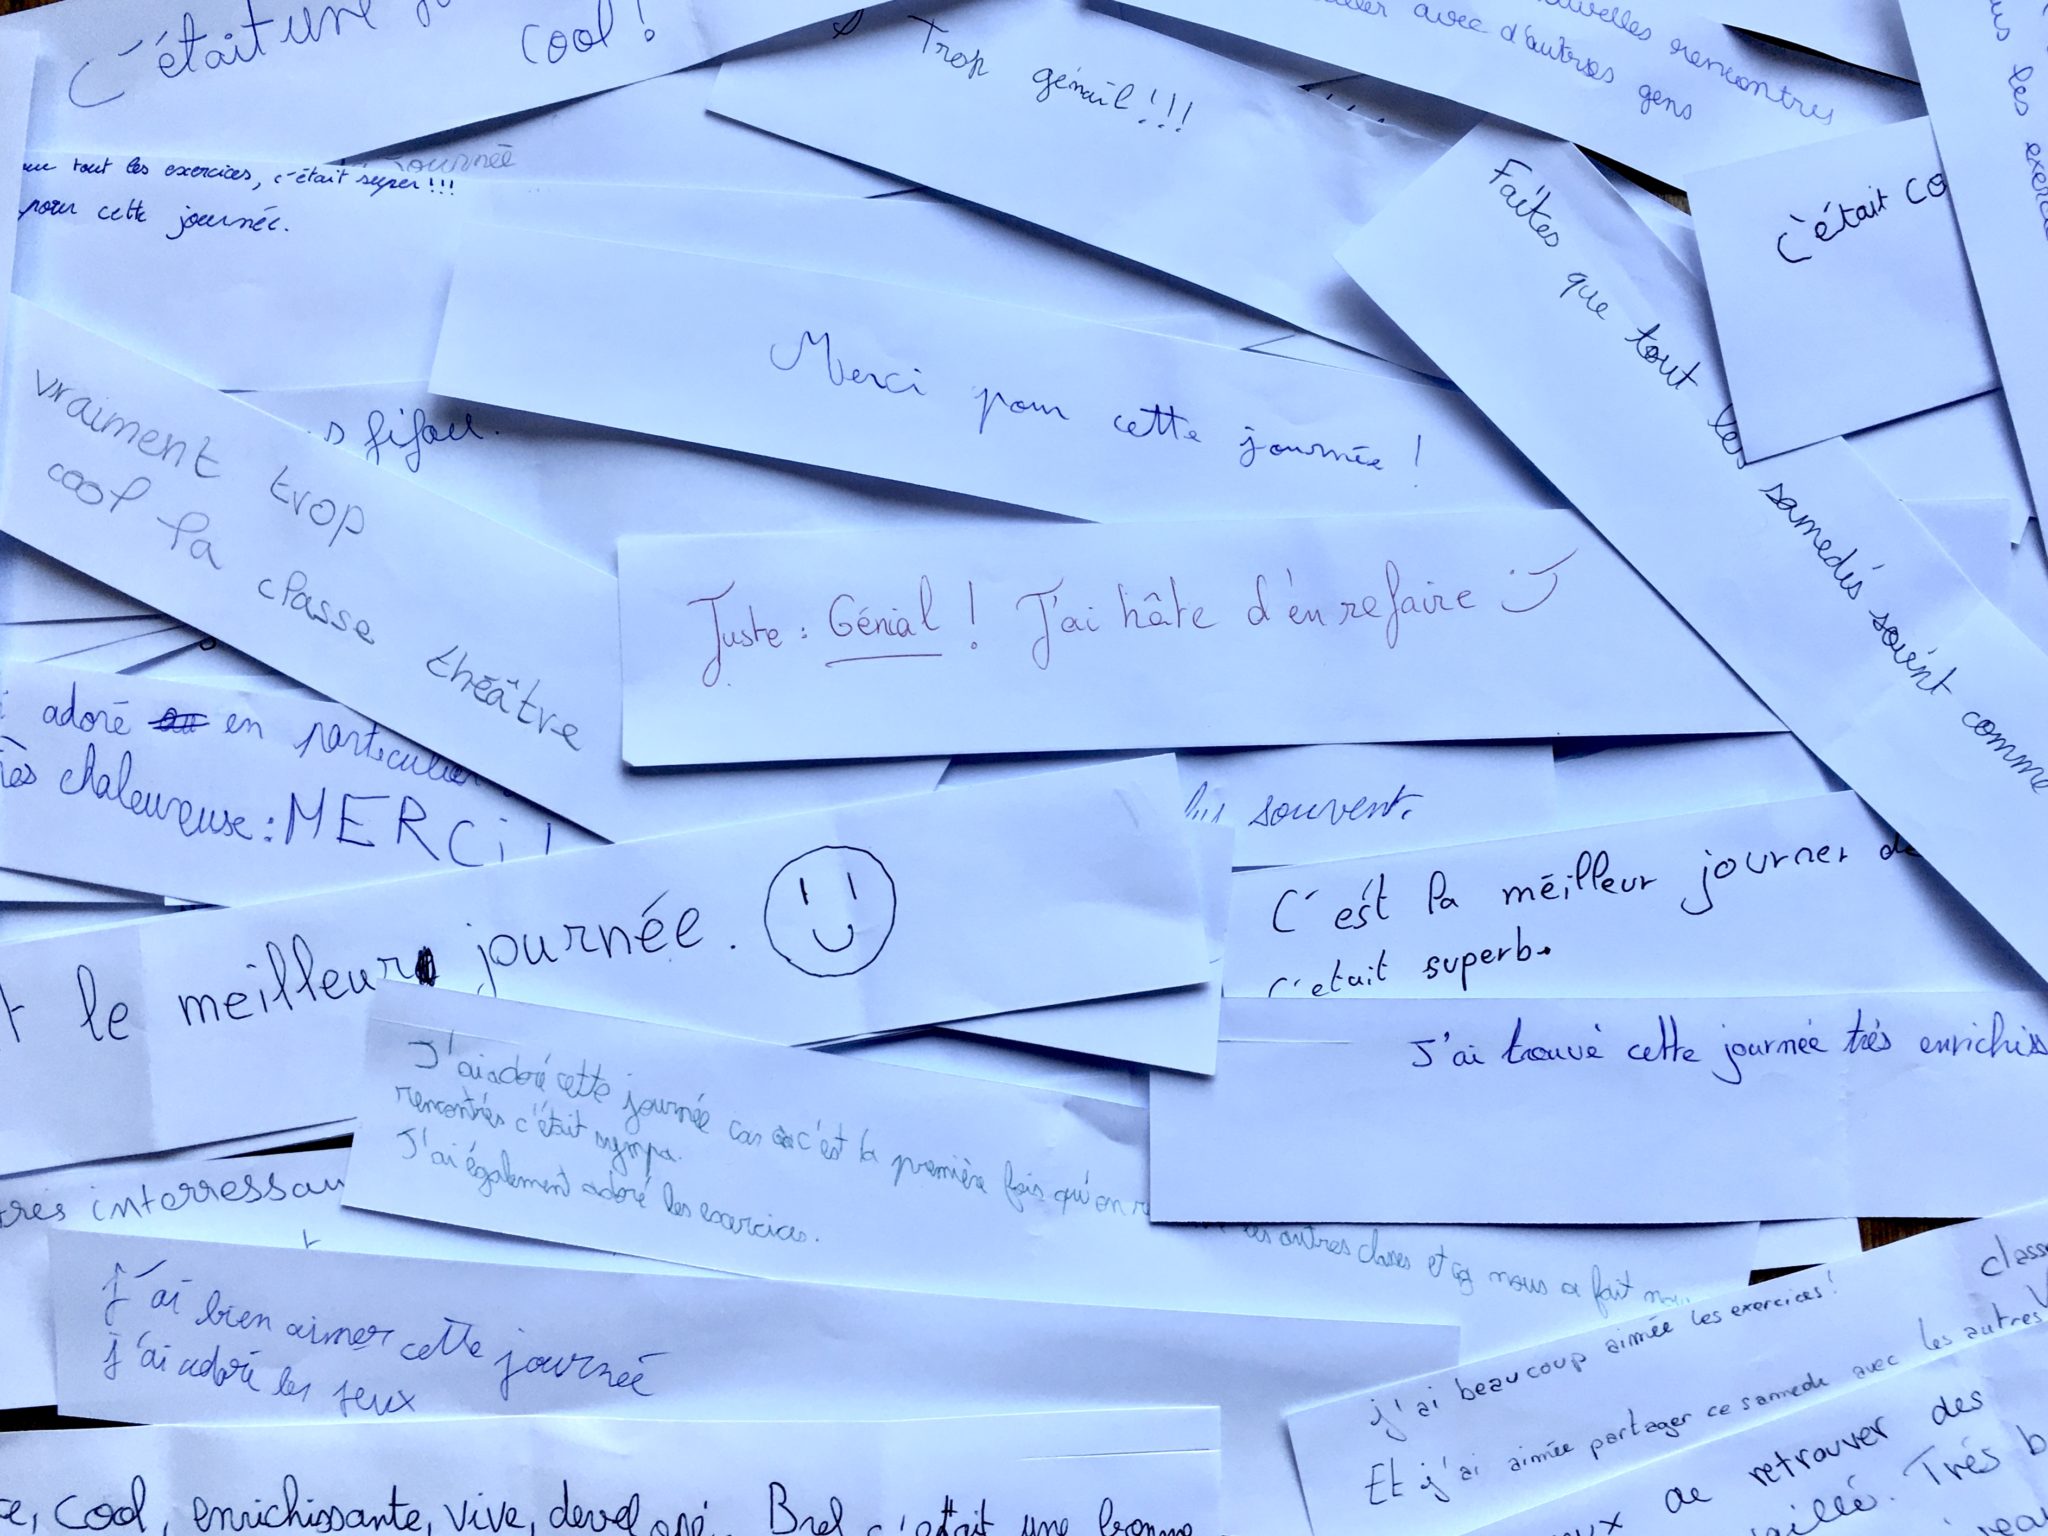 C'était une
cool !
Trop génail !!!
nouvelles rencontres
avec d'autres gens
les
tout les exercices, c'était super !!!
pour cette journée.
journée
Faites que tout les samedis soient comme
c'était co
Merci pour cette journée !
fifou.
vraiment trop
cool la classe théâtre
Juste : Génial ! J'ai hâte d'en refaire :)
adoré en particulier
chaleureuse : MERCi !
souvent.
C'est la meilleur journer de
c'etait superb.
le meilleur journée.
J'ai trouvé cette journée trés enrichiss
J'ai adoré cette journée car c'est la première fois qu'on
les autres classes et ça nous a fait
rencontrés c'était sympa.
J'ai également adoré les exercices.
tres interressan
J'ai bien aimer cette journée
J'ai adoré les jeux
class
j'ai beaucoup aimée les exercices !
Et j'ai aimée partager ce samedi avec les autres
de retrouver des
Trés b
cool, enrichissante, vive, developé. Bref c'était une bonne